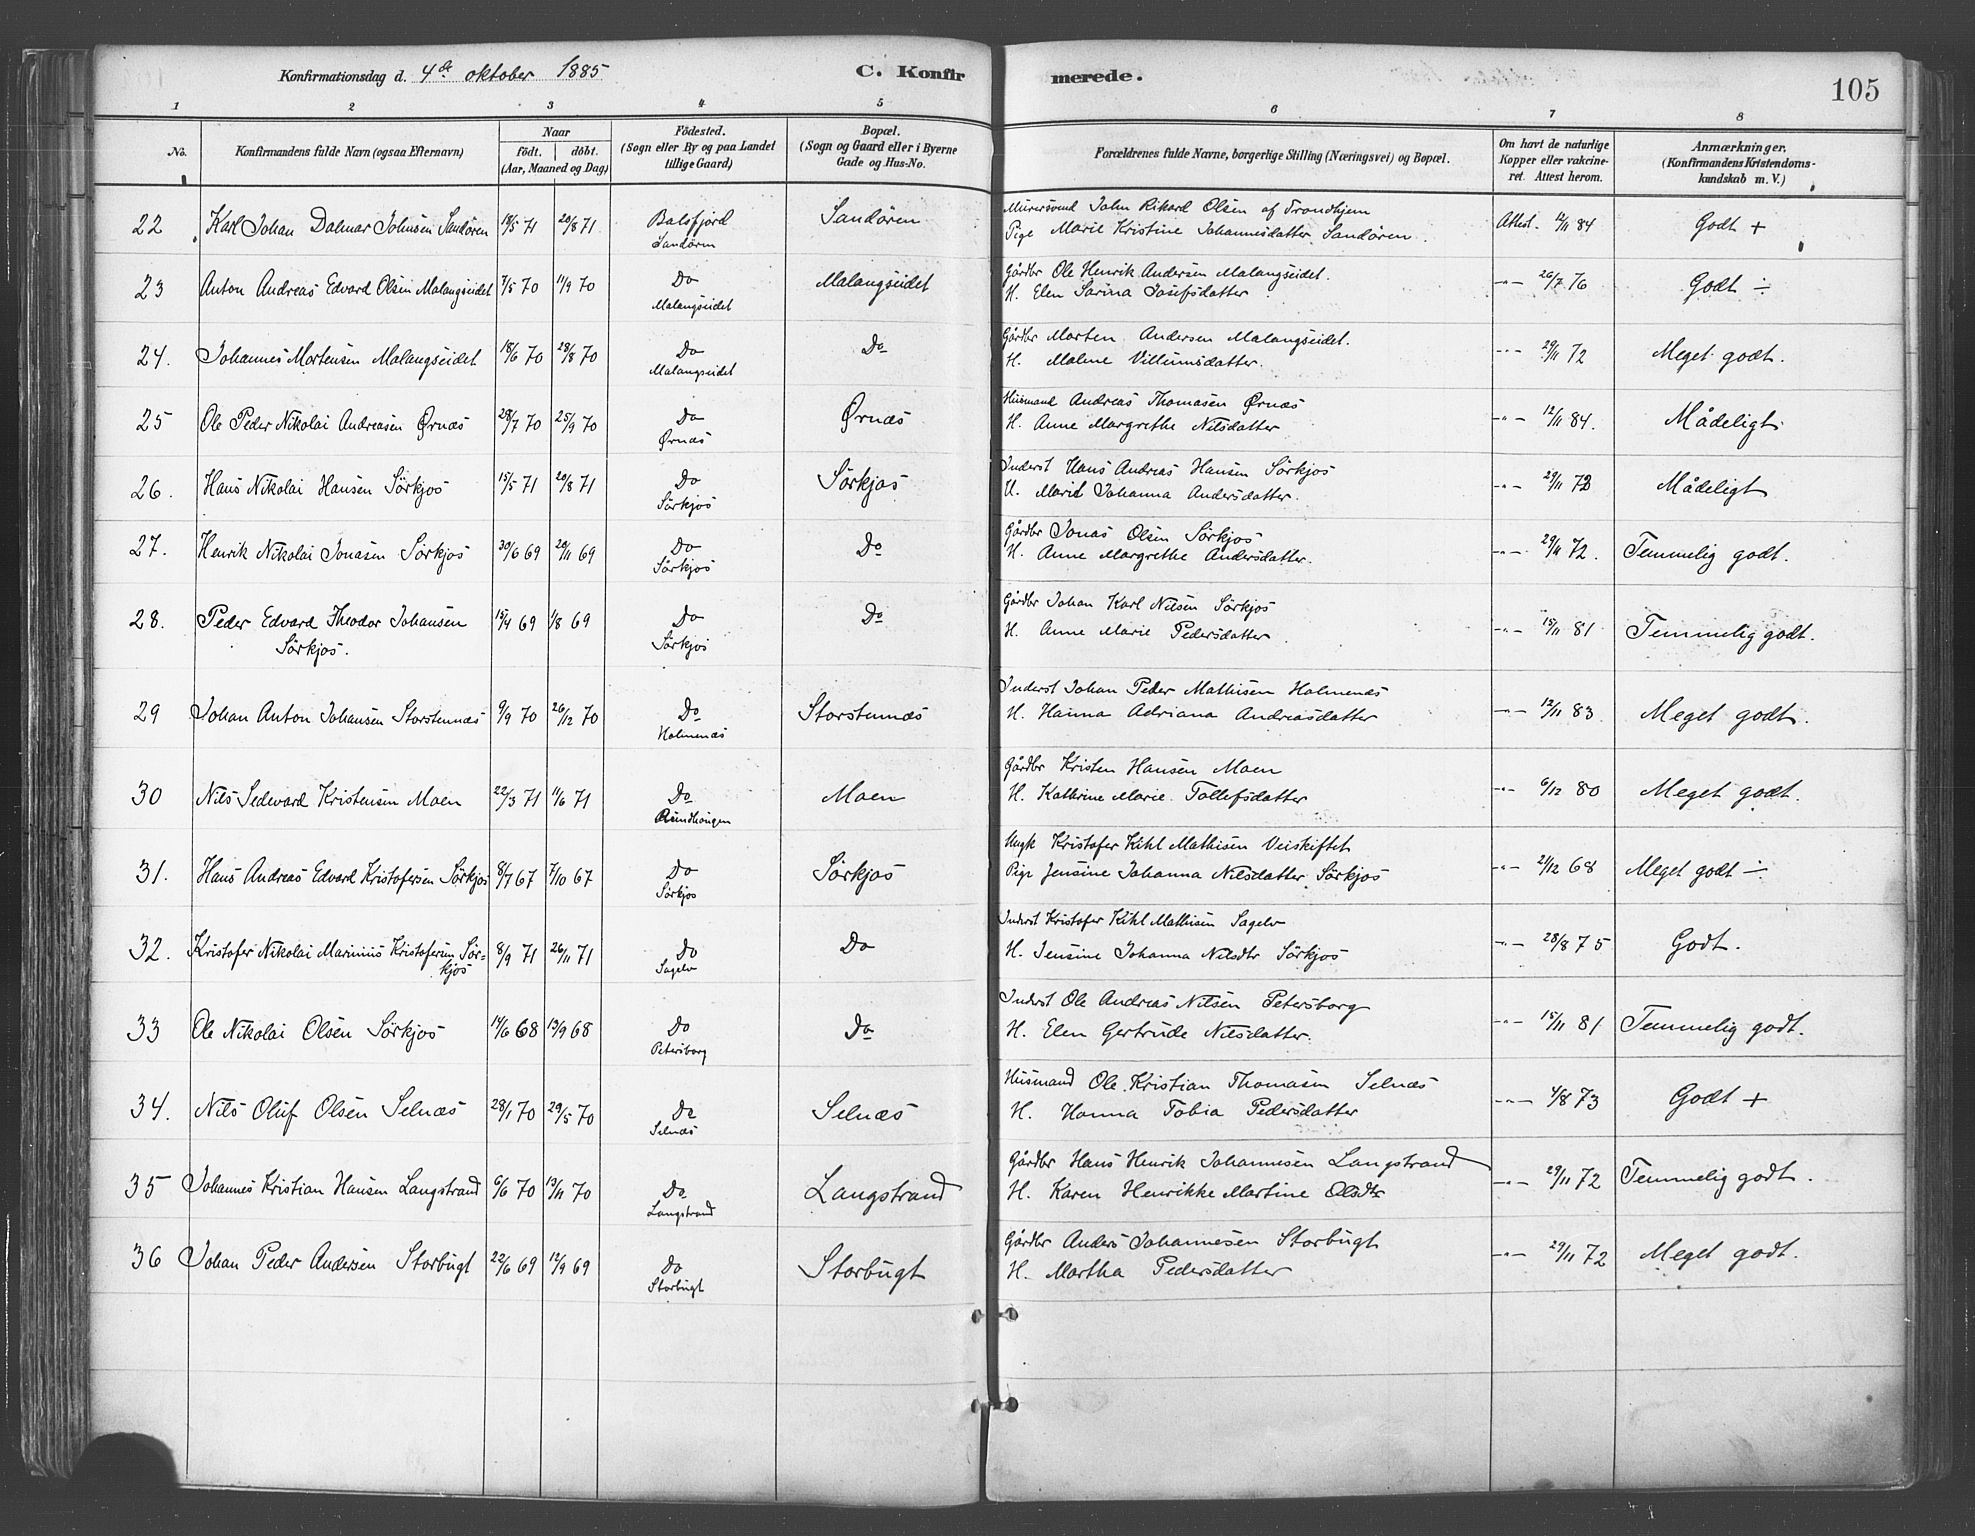 Konfirmationsdag d. 4de oktober 1885
C. Konfir merede.
105
1 2 3 4 5 6 7 8
No.
Konfirmandens fulde Navn (ogsaa Efternavn)
Naar
født. | døbt.
(Aar, Maaned og Dag)
Fødested.
(Sogn eller By og paa Landet
tillige Gaard)
Bopæl.
(Sogn og Gaard eller i Byerne
Gade og Hus-No.
Forældrenes fulde Navne, borgerlige Stilling (Næringsvei) og Bopæl.
Om havt de naturlige
Kopper eller vakcine-
ret. Attest herom.
Anmærkninger.
(Konfirmandens Kristendoms-
kundskab m. V.)
22 Karl Johan Dalmar Johnsen Sandøren 18/5 71 20/8 71 Balsfjord Sandøren Murersvend John Rikard Olsen af Trondhjem Attest. 84 Godt +
Sandøren Pige Marie Kristine Johannesdatter Sandøren.
23 Anton Andreas Edvard Olsen Malangseidet 7/5 70 11/9 70 Do Malangseidet Gårdbr Ole Henrik Andersen Malangseidet. -"- 26/7 76 Godt ÷
Malangseidet H. Elen Sarina Josefsdatter
24. Johannes Mortensen Malangseidet 18/6 70 28/8 70 Do Do Gårdbr Morten Andersen Malangseidet. -"- 29/11 72 Meget godt.
Malangseidet H. Malene Villumsdatter.
25 Ole Peder Nikolai Andreasen Ørnæs 28/7 70 25/9 70 Do Ørnæs Husmand Andreas Thomasen Ørnæs -"- 12/11 84. Mådeligt.
Ørnæs H. Anne Margrethe Nilsdatter
26. Hans Nikolai Hansen Sørkjos 15/5 71 20/8 71 Do Sørkjos Inderst Hans Andreas Hansen Sørkjos -"- 29/11 72 Mådeligt
Sørkjos H. Marit Johanna Andersdatter.
27. Henrik Nikolai Jonasen Sørkjos 30/6 69 20/11 69 Do Do Gårdbr Jonas Olsen Sørkjos -"- 29/11 72. Temmelig godt.
Sørkjos H. Anne Margrethe Andersdatter.
28. Peder Edvard Theodor Johansen 15/4 69 1/8 69 Do Do Gårdbr Johan Karl Nilsen Sørkjos -"- 15/11 81 Temmelig godt.
Sørkjos. Sørkjos H. Anne Marie Pedersdatter
29 Johan Anton Johansen Storstennæs 9/9 70 26/12 70 Do Storstennæs Inderst Johan Peder Mathisen Holmenæs -"- 12/11 83 Meget godt.
Holmenæs H. Hanna Adriana Andreasdatter
30 Nils Sedevard Kristensen Moen 22/3 71 11/6 71 Do Moen Gårdbr Kristen Hansen Moen -"- 6/12 80 Meget godt.
Rundhaugen H. Kathrine Marie Tollefsdatter
31. Hans Andreas Edvard Kristofersen Sørkjos 8/7 67 7/10 67 Do Sørkjos Ungk Kristofer Kihl Mathisen Veiskiftet -"- 21/12 68 Meget godt ÷
Sørkjos Pige Jensine Johanna Nilsdatter Sørkjos
32. Kristofer Nikolai Marinius Kristofersen Sør- 8/9 71 26/11 71 Do Do Inderst Kristofer Kihl Mathisen Sagelv -"- 28/8 75 Godt.
kjos Sagelv H. Jensine Johanna Nilsdtr Sørkjos
33 Ole Nikolai Olsen Sørkjos 14/6 68 13/9 68 Do Do Inderst Ole Andreas Nilsen Petersborg -"- 15/11 81 Temmelig godt.
Petersborg H. Elen Gertrude Nilsdatter.
34. Nils Oluf Olsen Selnæs 28/1 70 29/5 70 Do Selnæs Husmand Ole Kristian Thomasen Selnæs -"- 4/8 73 Godt +
Selnæs H. Hanna Tobia Pedersdatter
35 Johannes Kristian Hansen Langstrand 6/6 70 13/11 70 Do Langstrand Gårdbr Hans Henrik Johannesen Langstrand -"- 29/11 72 Temmelig godt.
Langstrand H. Karen Henrikke Martine Olsdtr
36 Johan Peder Andersen Storbugt 22/6 69 12/9 69 Do Storbugt Gårdbr Anders Johannesen Storbugt -"- 29/11 72 Meget godt.
Storbugt H. Martha Pedersdatter